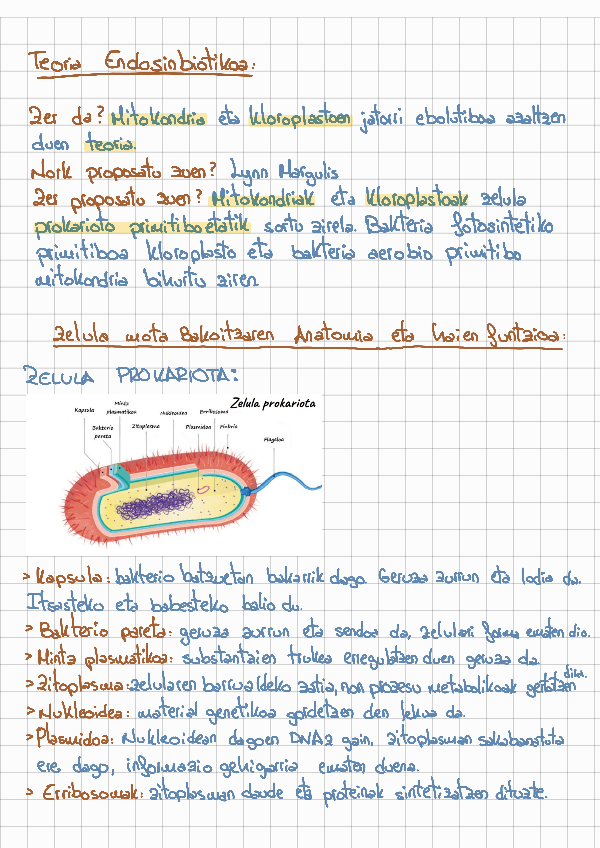 Teoria Endosinbiotikoa:
Zer da? Mitokondria eta kloroplastoen jatorri ebolutiboa azaltzen
duen teoria.
Nork proposatu zuen? Lynn Margulis
Zer proposatu zuen? Mitokondriak eta kloroplastoak zelula
prokarioto primitiboetatik sortu zirela. Bakteria fotosintetiko
primitiboa kloroplasto eta bakteria aerobio primitibo
mitokondria bihurtu ziren
Zelula mota Bakoitzaren Anatomia eta haien funtzioa:
ZELULA PROKARIOTA:
Zelula prokariota
Kapsula
Mintz plasmatikoa
Nukleoidea
Erribosoma
Bakterio pareta
Zitoplasma
Plasmidoa
Finbria
Flageloa
> Kapsula: bakterio batzuetan bakarrik dago. Geruza zurrun eta lodia da.
Itsasteko eta babesteko balio du.
> Bakterio pareta: geruza zurrun eta sendoa da, zelulari forma ematen dio.
> Mintz plasmatikoa: substantzien trukea erregulatzen duen geruza da
> Zitoplasma: zelularen barrualdeko zatia, non prozesu metabolikoak gertatzen dira.
> Nukleoidea: material genetikoa gordetzen den lekua da.
> Plasmidoa: Nukleoidean dagoen DNAz gain, zitoplasman sakabanatuta
ere dago, informazio gehigarria ematen duena.
> Erribosomak: zitoplasman daude eta proteinak sintetizatzen dituzte.